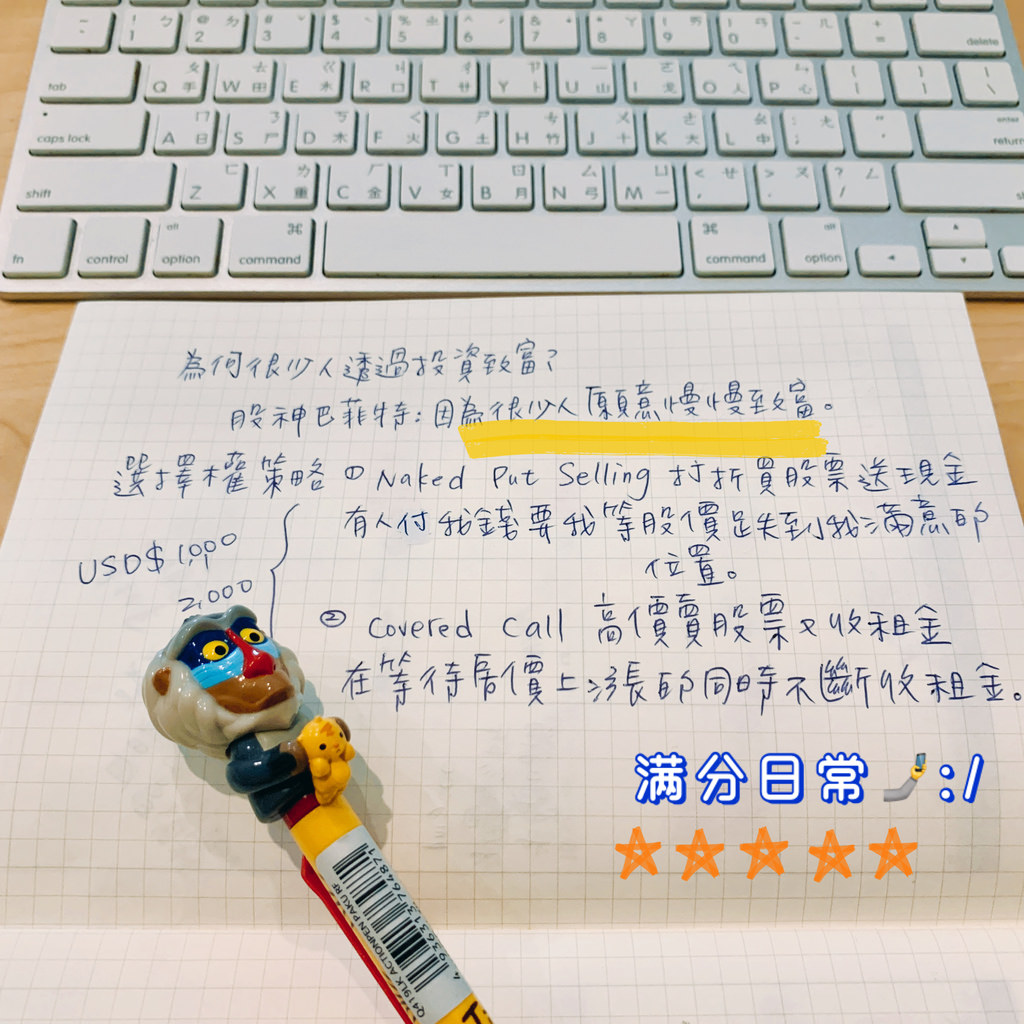 ~ ` 1 ! ㄅ 2 @ ㄉ 3 # ˇ 4 $ ˋ 5 % ㄓ 6 ^ ˊ 7 & ˙ 8 * ㄚ 9 ( ㄞ 0 ) ㄢ - ㄦ + = delete
tab Q ㄆ 手 W ㄊ 田 E ㄍ 水 R ㄐ 口 T ㄔ 廿 Y ㄗ 卜 U ㄧ 山 I ㄛ 戈 O ㄟ 人 P ㄣ 心 { [ } ] | \
caps lock A ㄇ 日 S ㄋ 尸 D ㄎ 木 F ㄑ 火 G ㄕ 土 H ㄘ 竹 J ㄨ 十 K ㄜ 大 L ㄠ 中 : ; ㄤ " ' enter return
shift Z ㄈ X ㄌ 重 C ㄏ 金 V ㄒ 女 B ㄖ 月 N ㄙ 弓 M ㄩ 一 < , ㄝ > . ㄡ ? / ㄥ
fn control alt option ⌘ command ⌘ command alt option
為何很少人透過投資致富?
股神巴菲特:因為很少人願意慢慢致富。
選擇權策略 ① Naked Put Selling 打折買股票送現金
有人付我錢要我等股價跌到我滿意的
位置。
USD$ 1,000
2,000
② Covered Call 高價賣股票又收租金
在等待房價上漲的同時不斷收租金。
满分日常 :/
Q419LK ACTIONPEN PAKU RF
4936313764871